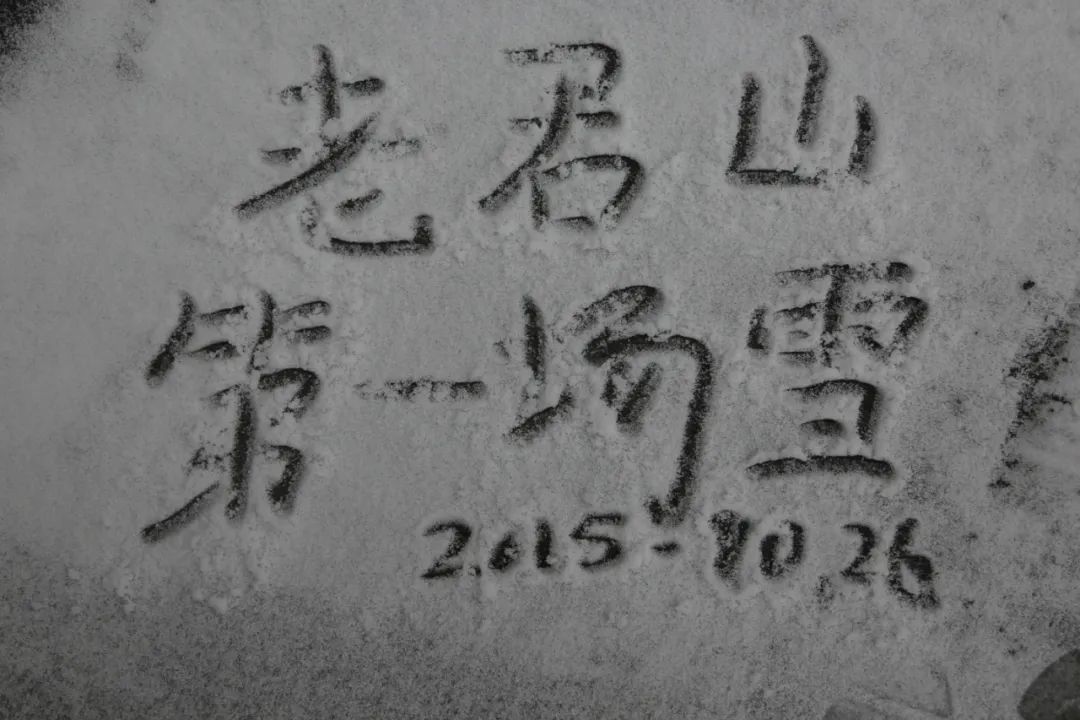 老君山
第一场雪
2015.10.26